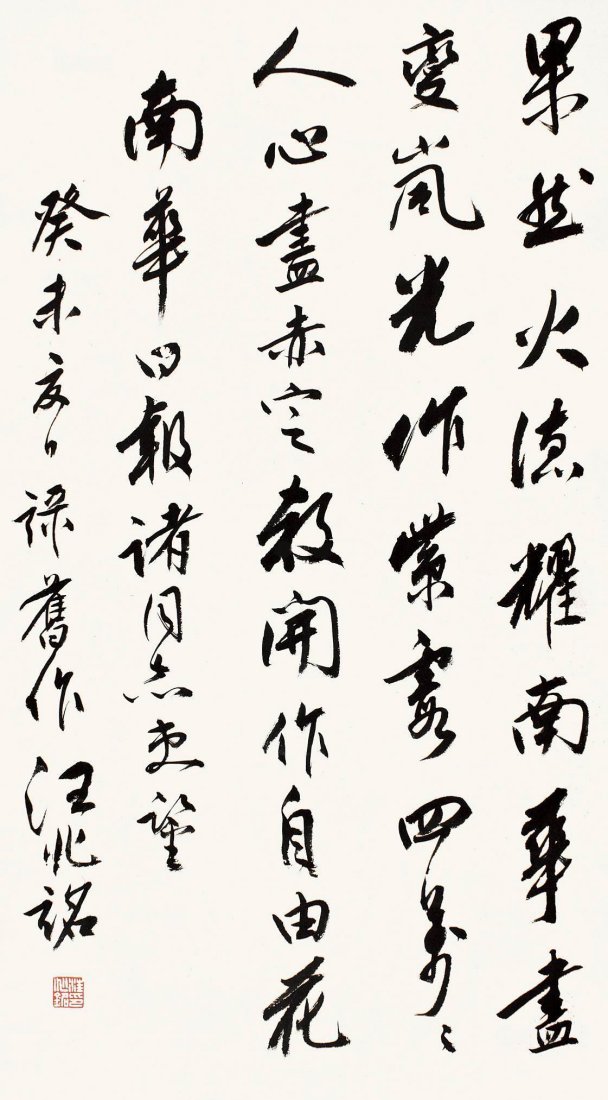 果然火德耀南華盡
變嵐光作紫霞四萬々
人心盡赤定教開作自由花
南華日報諸同志
癸未夏日錄舊作汪兆銘